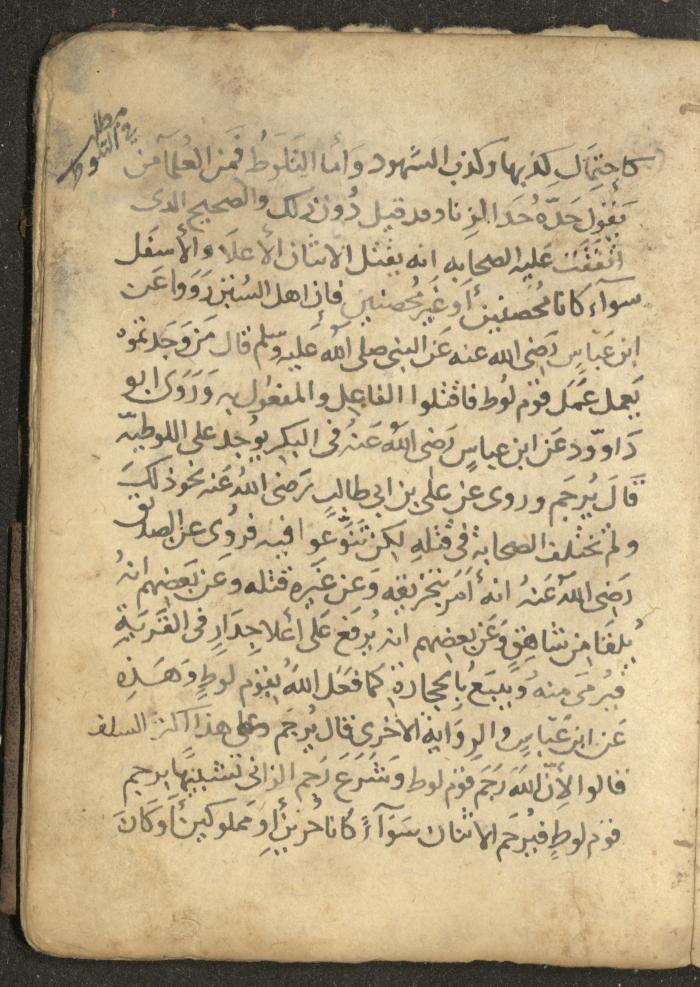 مطلب
في التلوط
كاحتمال كذبها وكذب الشهود وأما التَلَوّطُ فمن العُلمآ من
يَقول حَدّهُ حَدُ الزِنا وقد قيل دُون ذلك والصحيح الذى
اتفقَت عليه الصحابه انه يقتل الاثنان الأعلا والأسفل
سوآء كانا مُحصنين أو غَير مُحصنين فان اهل السُنن رَوَوا عَن
ابن عبّاس رَضى الله عنه عَن النبى صلى الله عَليه وسلم قال مَن وَجَدتموه
يَعمل عَمَل قوْم لُوط فاقتلوا الفاعِل والمفعُول به وَرَوَى ابو
دَاوود عَن ابن عباسٍ رَضى اللهُ عَنهُ فى البكر يوُجد على اللوطيّة
قالَ يُرجَم وروى عن على بن ابى طالبٍ رَضى اللهُ عَنه نحو ذلكَ
ولم تختلف الصحابة فى قتلهِ لكن تَنَوّعوا فيه فروُى عن الصديق
رَضِى اللهُ عَنهُ انه أمَر بتحريقه وَعن غَيره قتله وعَن بَعضِهم انهُ
يُلقَا من شاهِقٍ وَعَن بعضِهم انه يُرفع عَلى أعلا جِدَارٍ فى القَريَةِ
فيُرمَى منهُ ويُتبعُ بالحجارة كما فعَل اللهُ بقوْم لوطٍ وَهَذِه
عَن ابن عَبّاسٍ والرِوَاية الأخرى قال يُرجَم وعلى هذا اكثر السلف
قالوا لأِنّ اللهَ رَجَم قوْم لوط وَشَرَعَ رَجم الزانى تشبيهًا برجم
قوْم لوطٍ فيُرجَم الاثنان سَوَآءً كانا حُرّين أو مَملوكين أوْ كانَ